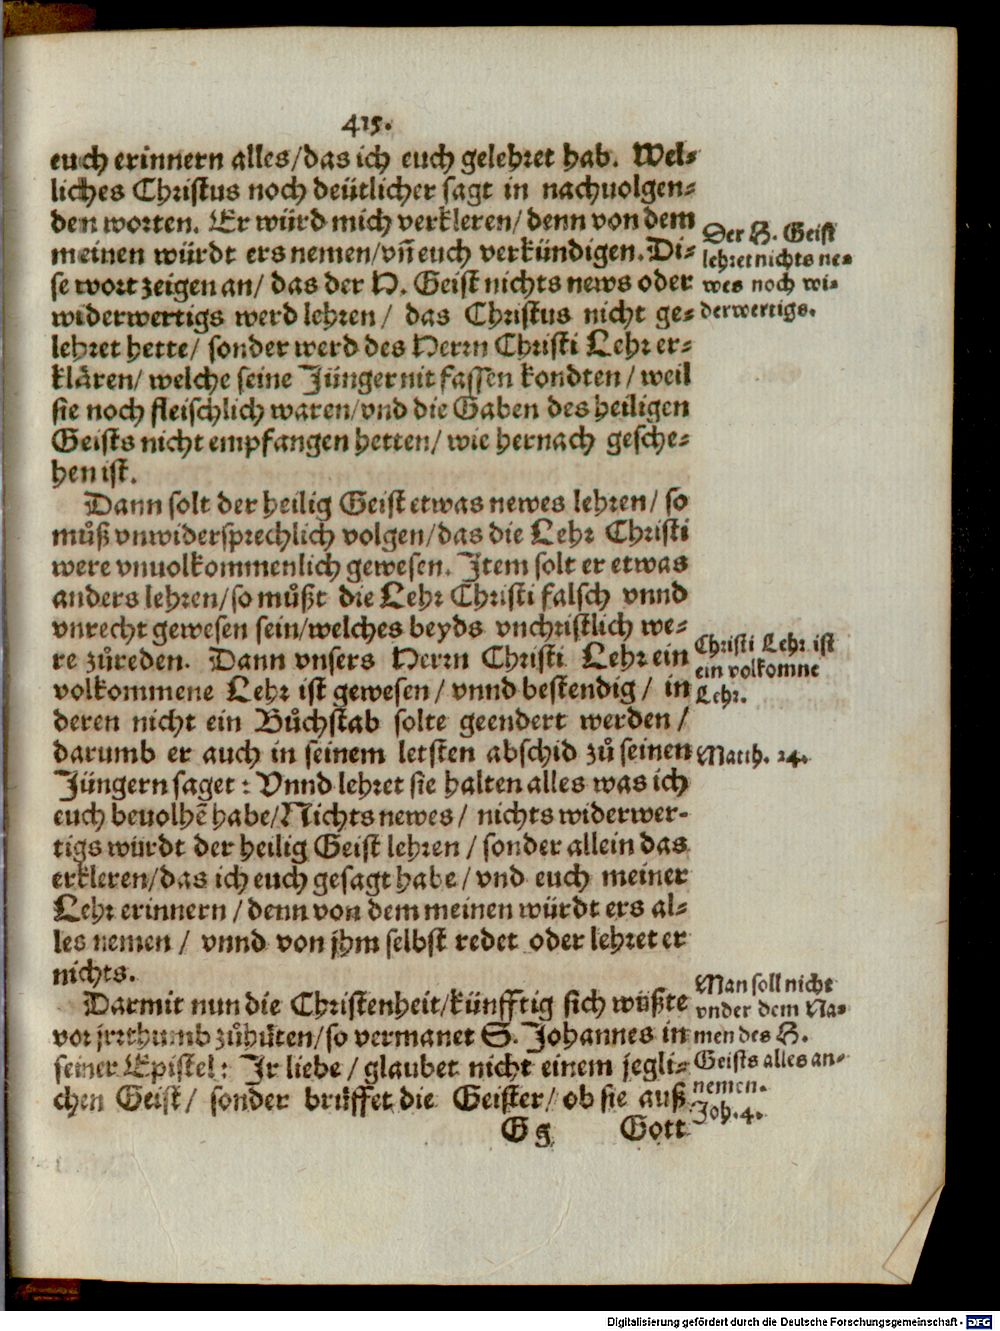 415.
euch erinnern alles/das ich euch gelehret hab. Wel-
liches Christus noch deütlicher sagt in nachuolgen-
den worten. Er würd mich verkleren/ denn von dem
meinen würdt ers nemen/vñ euch verkündigen. Di-
se wort zeigen an/ das der H. Geist nichts news oder
widerwertigs werd lehren/ das Christus nicht ge-
lehret hette/ sonder werd des Herrn Christi Lehr er-
klären/ welche seine Jünger nit fassen kondten/ weil
sie noch fleischlich waren/vnd die Gaben des heiligen
Geists nicht empfangen hetten/ wie hernach gesche-
hen ist.
Der H. Geist
lehret nichts ne-
wes noch wi-
derwertigs.
Dann solt der heilig Geist etwas newes lehren/ so
můß vnwidersprechlich volgen/das die Lehr Christi
were vnuolkommenlich gewesen. Item solt er etwas
anders lehren/so můßt die Lehr Christi falsch vnnd
vnrecht gewesen sein/welches beyds vnchristlich we-
re zůreden. Dann vnsers Herrn Christi Lehr ein
volkommene Lehr ist gewesen/ vnnd bestendig/ in
deren nicht ein Bůchstab solte geendert werden/
darumb er auch in seinem letsten abschid zů seinen
Jüngern saget: Vnnd lehret sie halten alles was ich
euch beuolhẽ habe/Nichts newes/ nichts widerwer-
tigs würdt der heilig Geist lehren/ sonder allein das
erkleren/das ich euch gesagt habe/ vnd euch meiner
Lehr erinnern/ denn von dem meinen würdt ers al-
les nemen/ vnnd von jhm selbst redet oder lehret er
nichts.
Christi Lehr ist
ein volkomne
Lehr.
Matth. 24.
Darmit nun die Christenheit/künfftig sich wüßte
vor jrrthumb zůhüten/so vermanet S. Johannes in
seiner Epistel: Ir liebe/ glaubet nicht einem jegli-
chen Geist/ sonder brüffet die Geister/ ob sie auß
Man soll nicht
vnder dem Na-
men des H.
Geists alles an-
nemen.
Joh. 4.
G g Gott
Digitalisierung gefördert durch die Deutsche Forschungsgemeinschaft - DFG